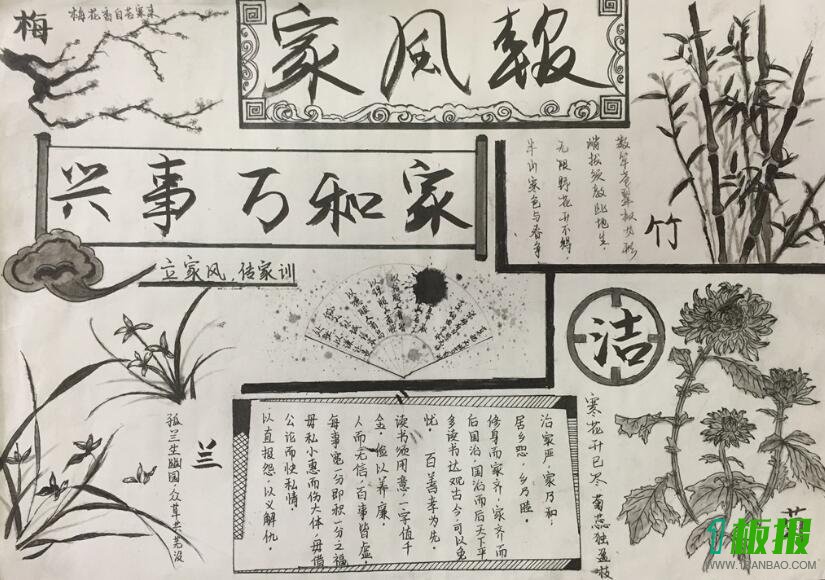 梅
梅花香自苦寒来
家风報
家和万事兴
立家风，传家训
数竿苍翠拟龙形
峭拔须教此地生，
无限野花开不得，
半山寒色与春争
竹
洁
寒花开已尽 菊蕊独盈枝
兰
孤兰生幽园 众草共芜没
治家严，家乃和，
居乡恕，乡乃睦。
修身而家齐，家齐而
后国治，国治而后天下平
多读书达观古今可以免
忧。 百善孝为先
读书须用意，一字值千
金。俭以养廉
人而无信，百事皆虚。
每事宽一分即积一分之福
毋私小惠而伤大体，毋借
公论而快私情
以直报怨，以义解仇。
1板报
WWW.1BANBAO.COM